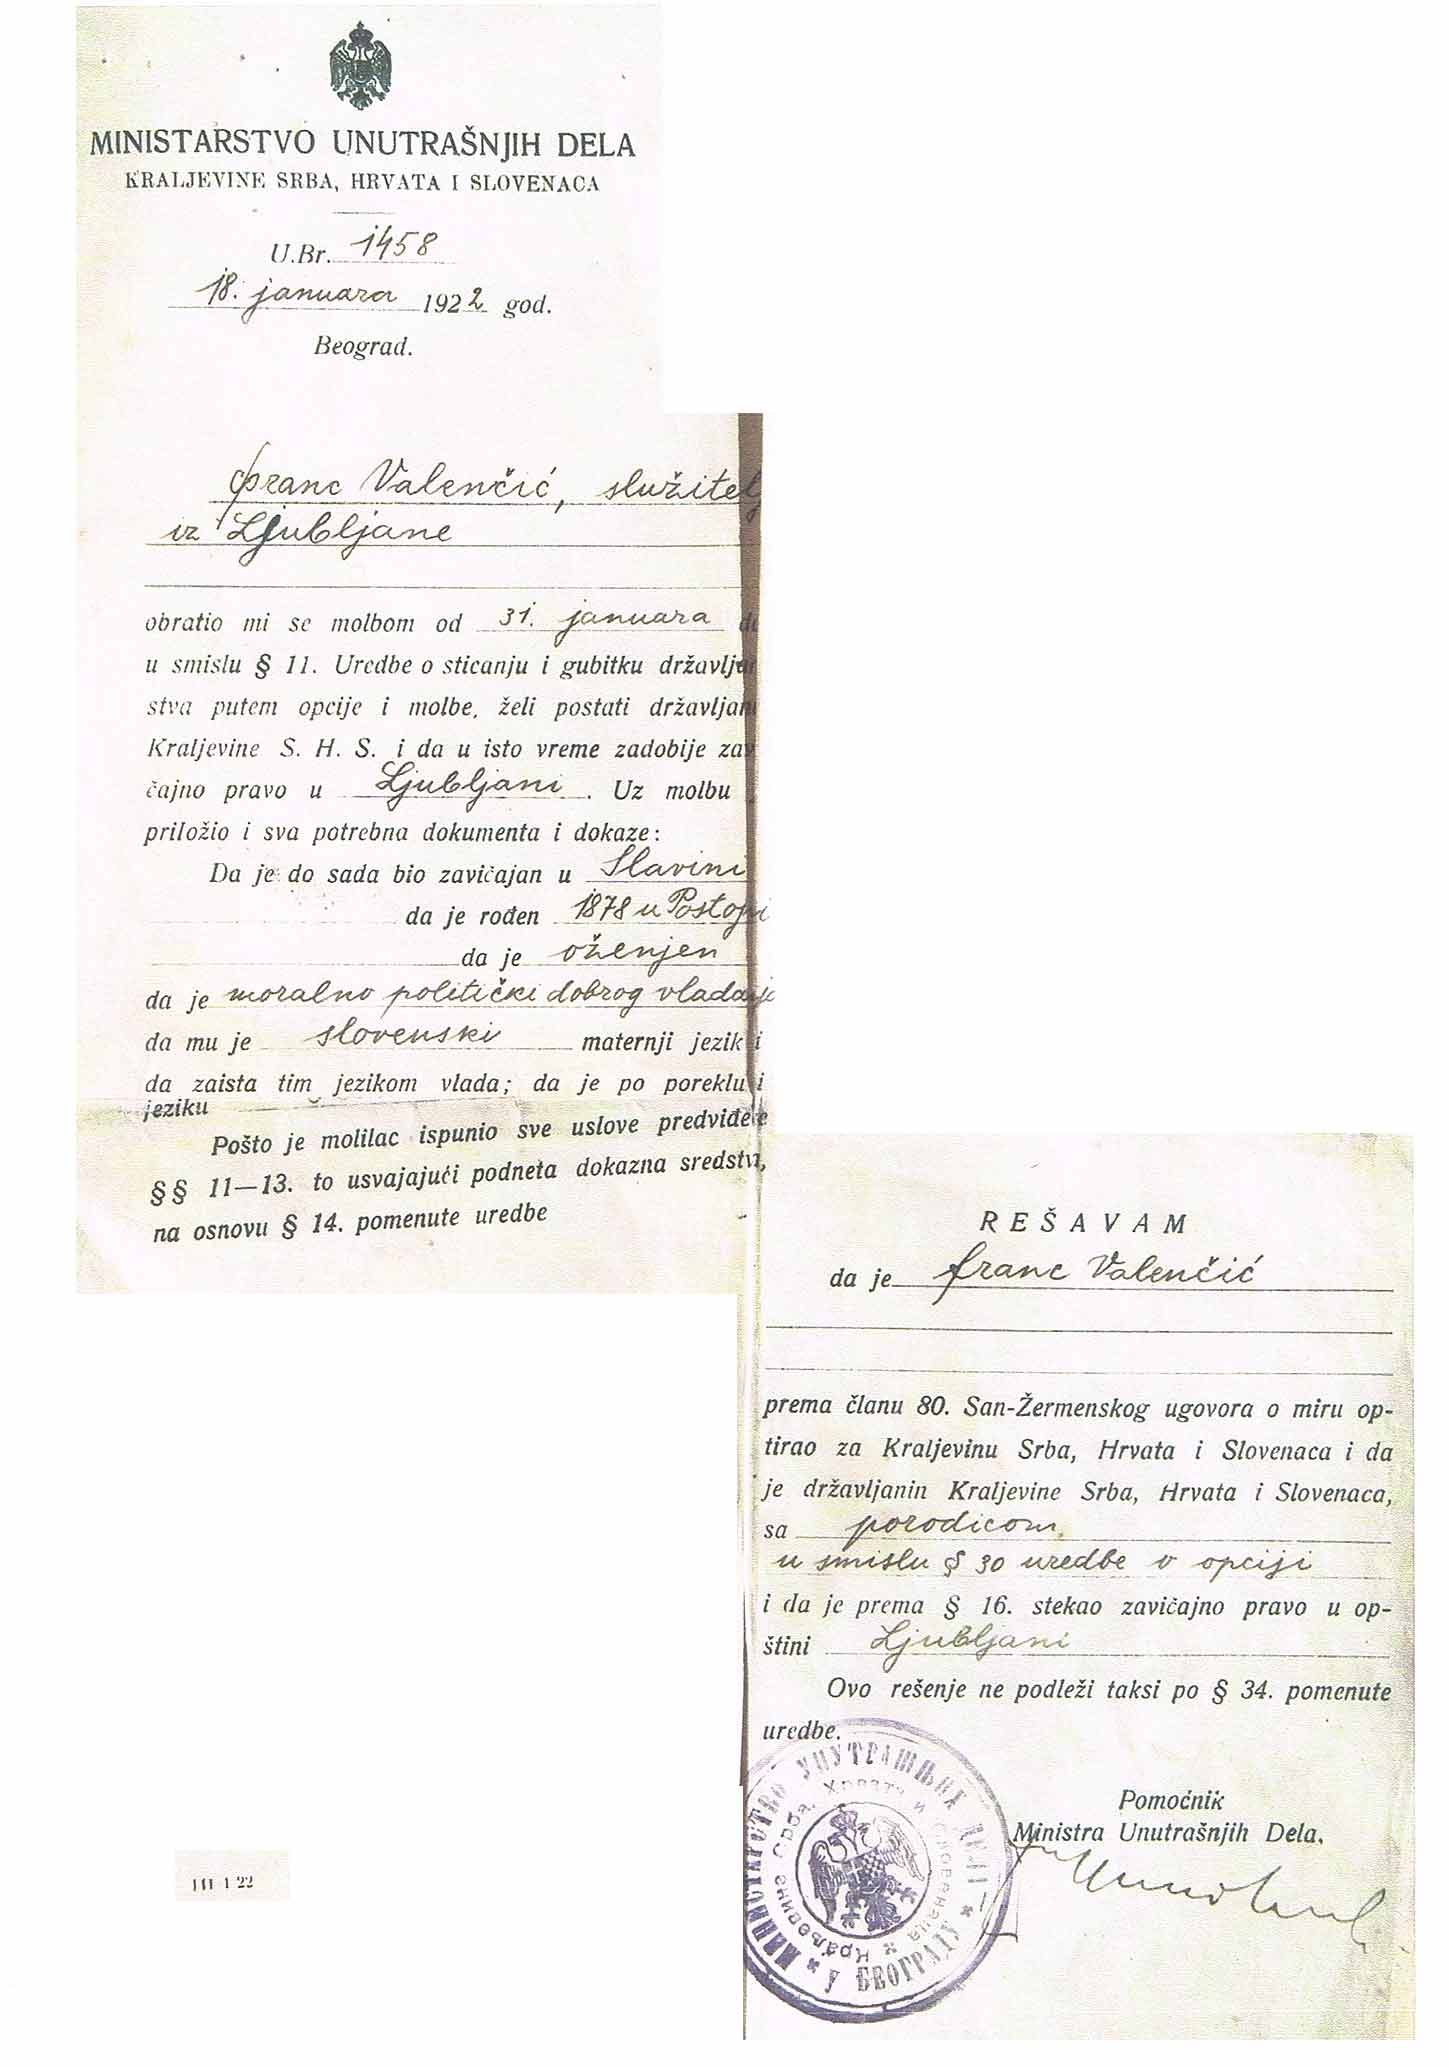 MINISTARSTVO UNUTRAŠNJIH DELA
KRALJEVINE SRBA, HRVATA I SLOVENACA
U.Br. 1458
18. januara 1922 god.
Beograd.
Франc Valenčić, služitelj
iz Ljubljane
obratio mi se molbom od 31. januara da
u smislu § 11. Uredbe o sticanju i gubitku državljan
stva putem opcije i molbe, želi postati državljani
Kraljevine S. H. S. i da u isto vreme zadobije zav
čajno pravo u Ljubljani. Uz molbu
priložio i sva potrebna dokumenta i dokaze:
Da je do sada bio zavičajan u Slavini
da je rođen 1878 u Postojni
da je oženjen
da je moralno politički dobrog vladanja
da mu je slovenski maternji jezik i
da zaista tim jezikom vlada; da je po poreklu i
jeziku
Pošto je molilac ispunio sve uslove predviđene
§§ 11—13. to usvajajući podneta dokazna sredstva,
na osnovu § 14. pomenute uredbe
REŠAVAM
da je Franc Valenčić
prema članu 80. San-Žermenskog ugovora o miru op-
tirao za Kraljevinu Srba, Hrvata i Slovenaca i da
je državljanin Kraljevine Srba, Hrvata i Slovenaca,
sa porodicom,
u smislu § 30 uredbe o opciji
i da je prema § 16. stekao zavičajno pravo u op-
štini Ljubljani
Ovo rešenje ne podleži taksi po § 34. pomenute
uredbe.
Pomoćnik
Ministra Unutrašnjih Dela,
МИНИСТАРСТВО УНУТРАШЊИХ ДЕЛА
У БЕОГРАДУ
Краљевине Срба, Хрвата и Словенаца